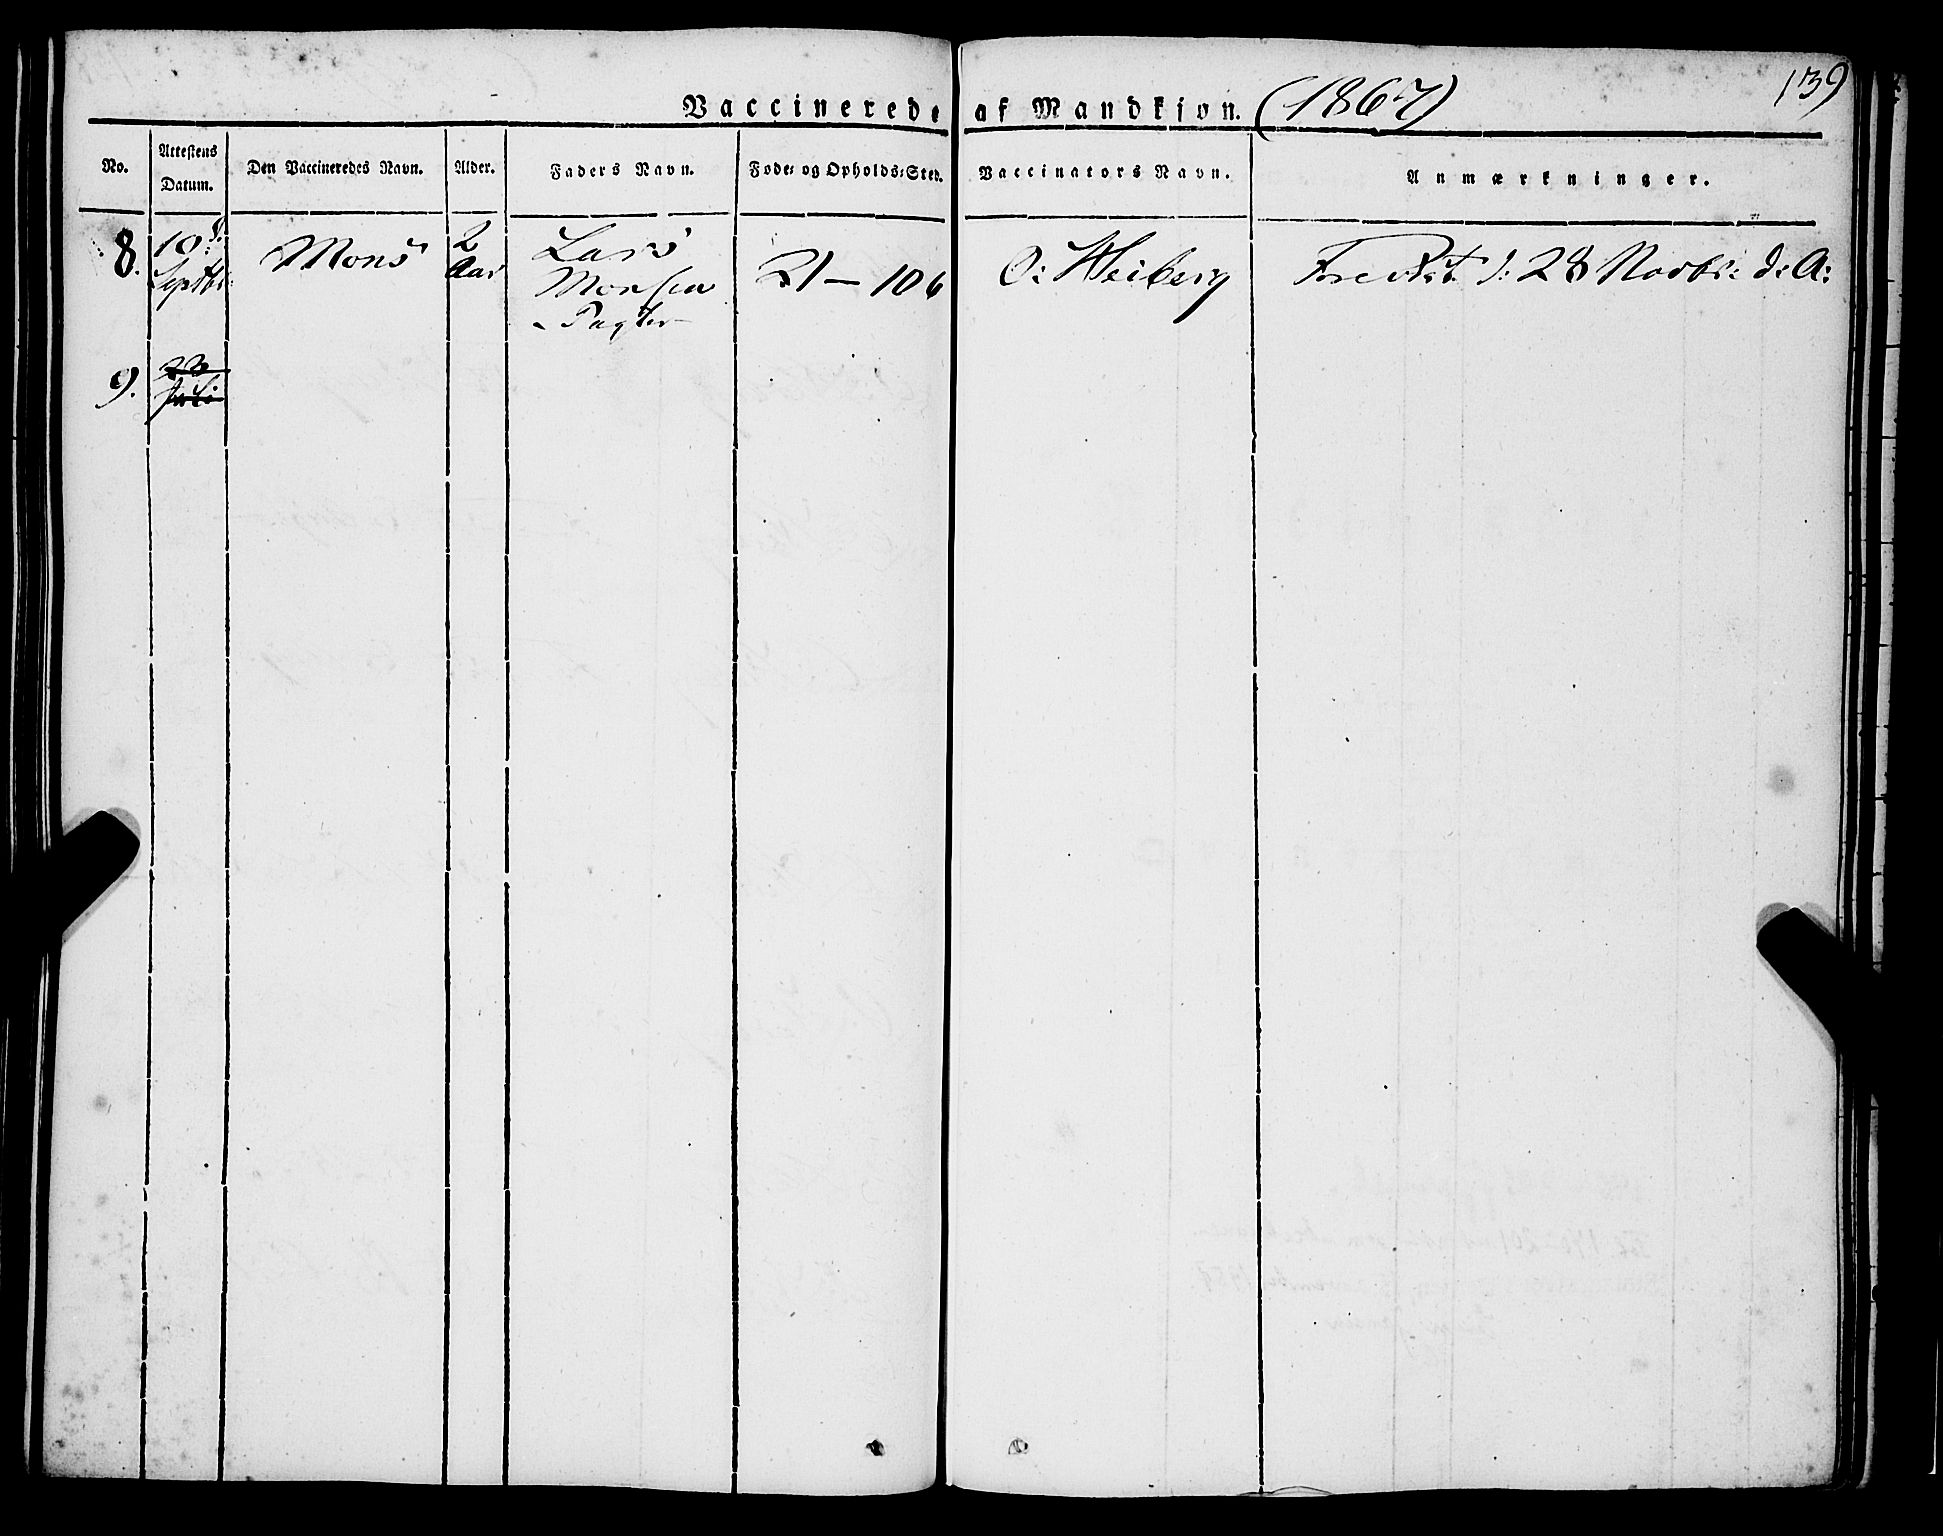 139
Vaccinerede af Mandkjøn. (1867)
No. Attestens Datum. Den Vaccineredes Navn. Alder. Faders Navn. Føde- og Opholds-Sted. Vaccinators Navn. Anmærkninger.
8. 10de Septbr: Mons 2 Aar Lars Monsen 21 – 106 O: Heiberg d: 28 Novbr: d: A:
9. 23 Juli